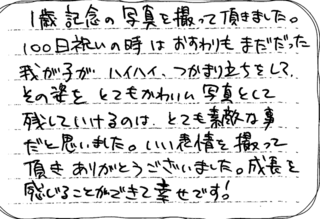 1歳記念の写真を撮って頂きました。
100日祝いの時はおすわりもまだだった
我が子が ハイハイ、つかまり立ちをして、
その姿を とてもかわいい 写真として
残していけるのは、とても素敵な事
だと思いました。いい表情を撮って
頂き ありがとうございました。成長を
感じることができて 幸せです!